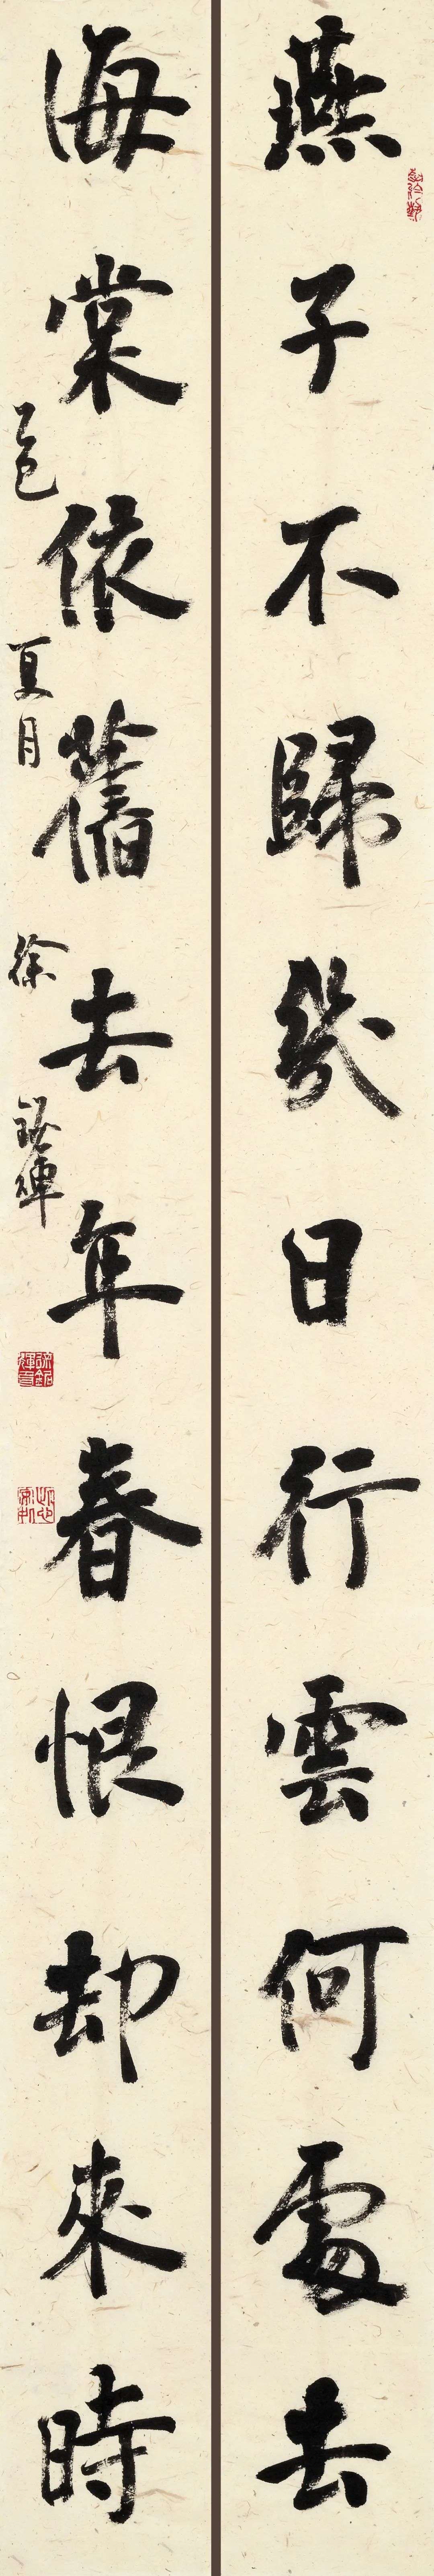 燕子不歸幾日行雲何處去
海棠依舊去年春恨却來時
乙巳夏月徐銘輝